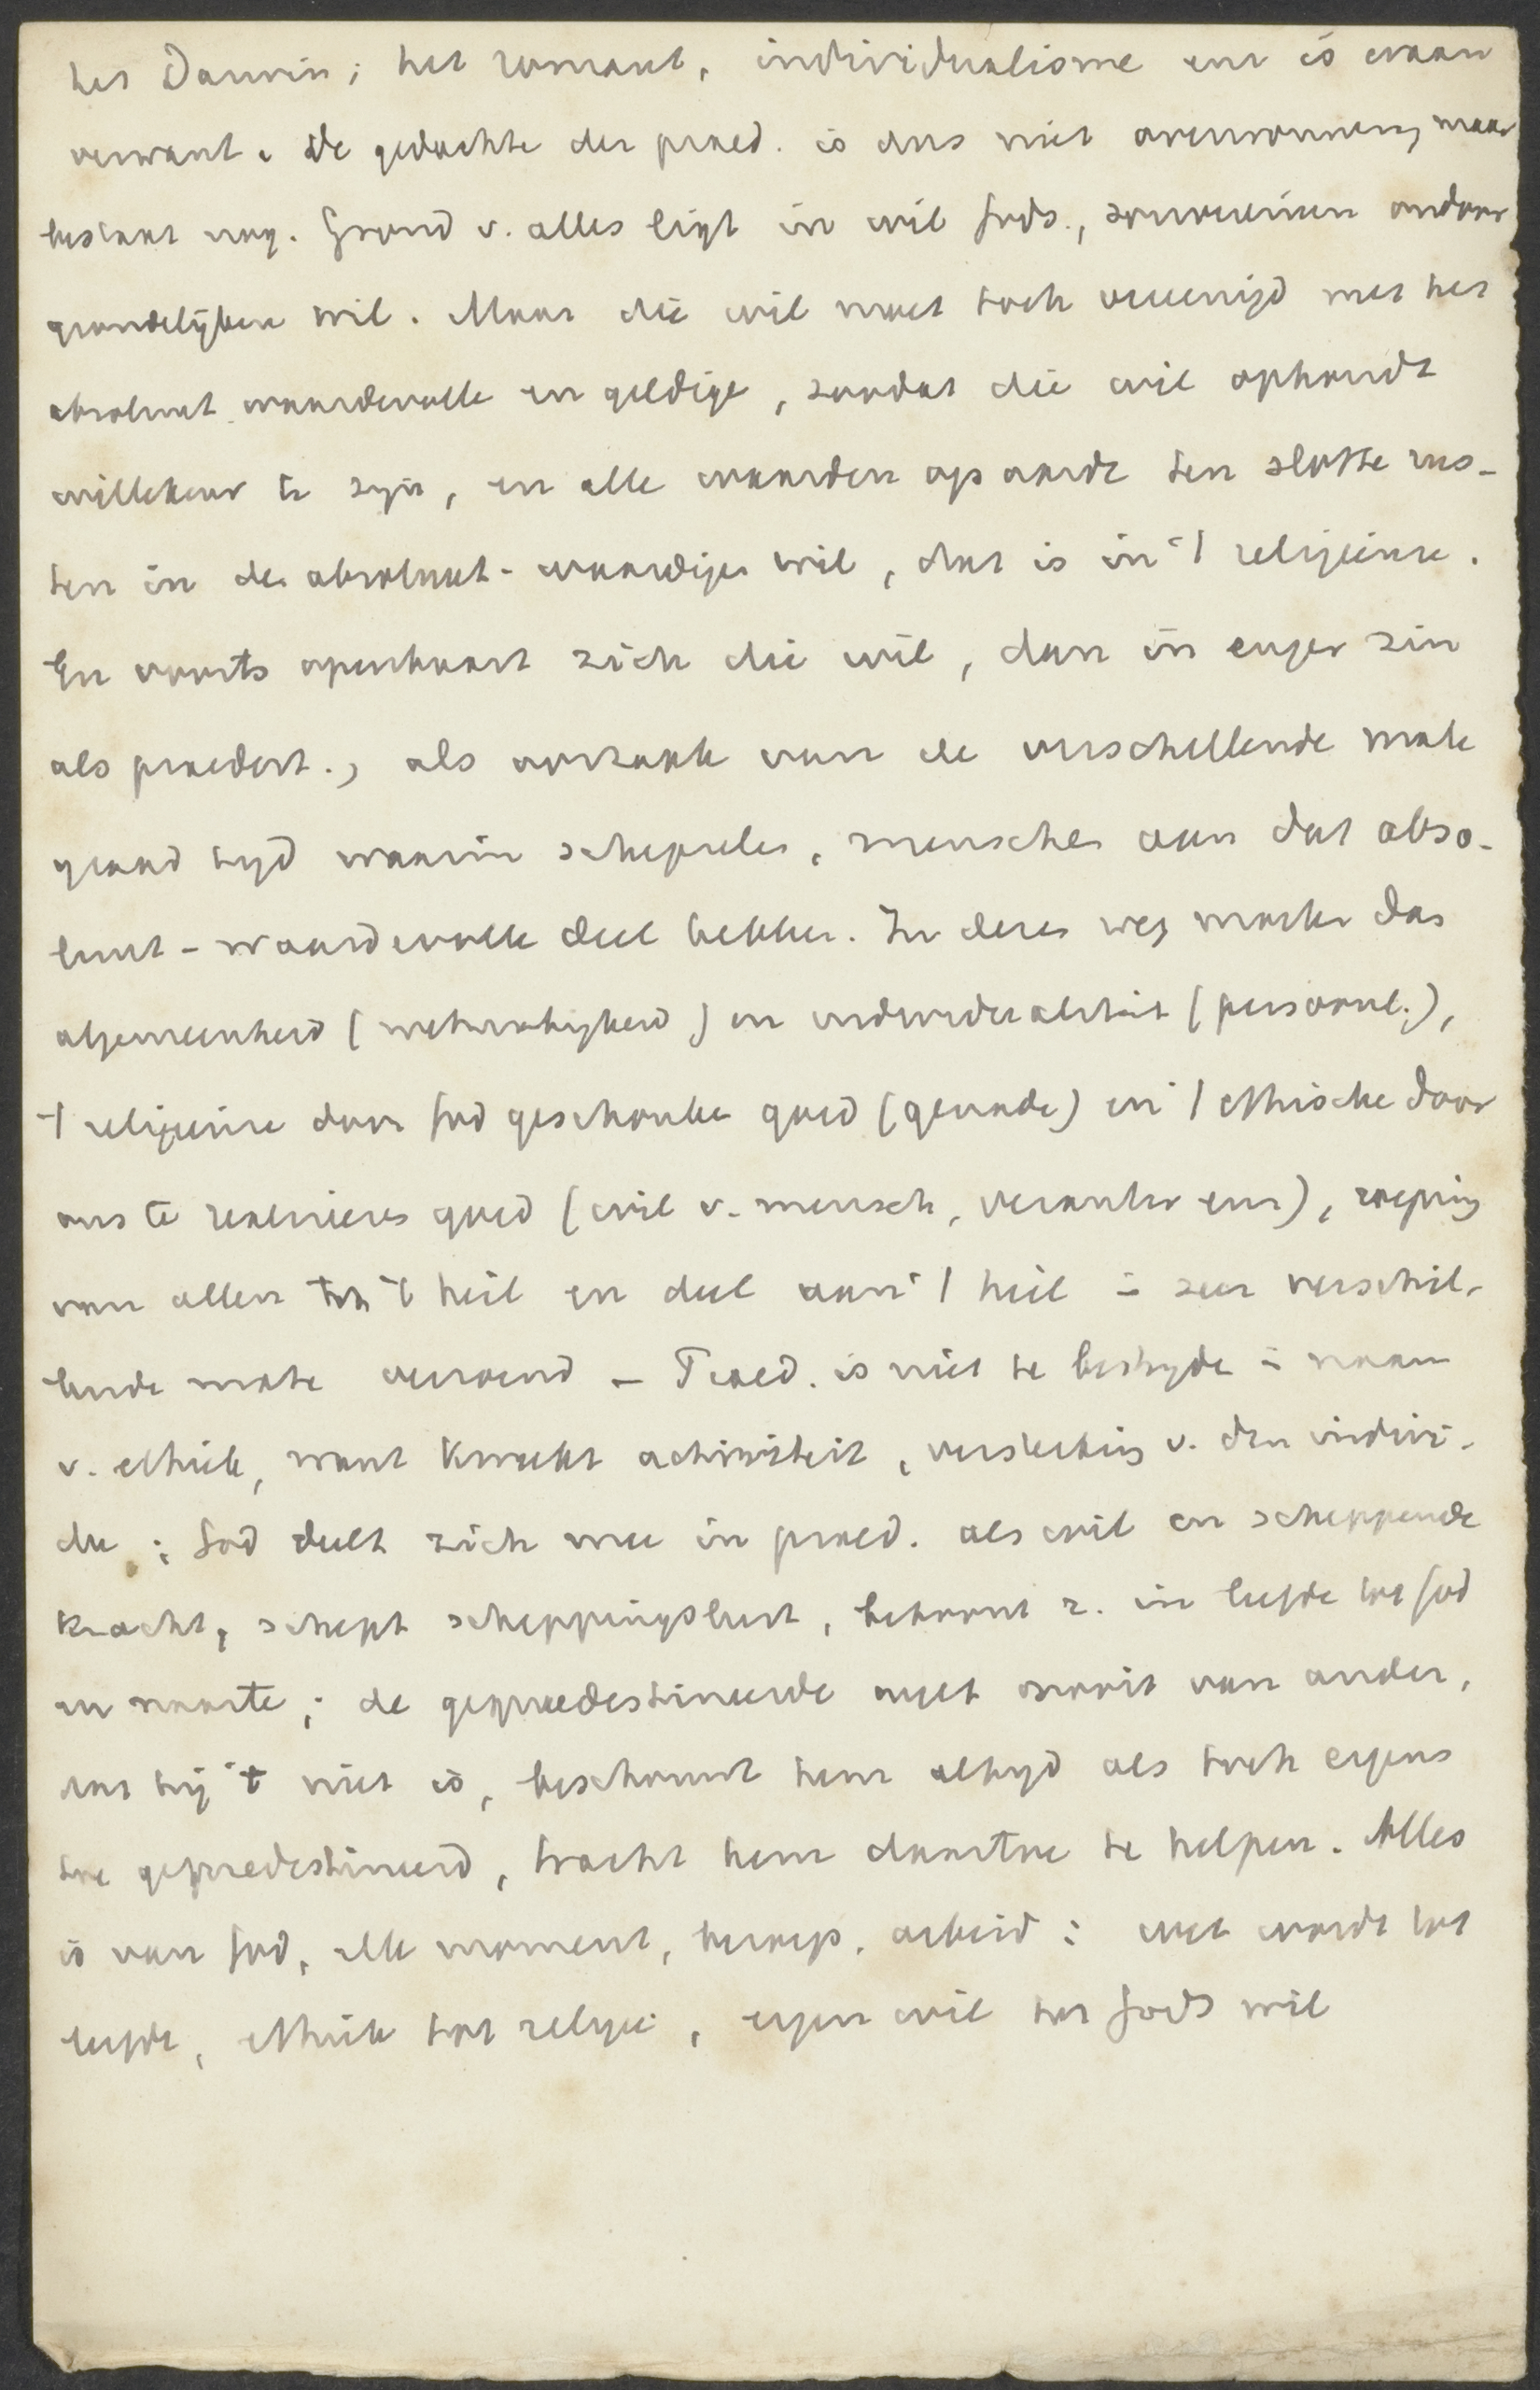 het Darwin; het romant. individualisme enz is eraan
verwant. De gedachte der praed. is dus niet overwonnen, maar
bestaat nog. Grond v. alles ligt in wil Gods, souvereinen ondoor
grondelijken wil. Maar die wil moet toch vereenigd met het
absoluut waardevolle en geldige, zoodat die wil ophoudt
willekeur te zijn, en alle waarden op aarde ten slotte rus-
ten in de absoluut-waardige wil, dat is in 't religieuse.
En voorts openbaart zich die wil, dan in enger zin
als praedest., als oorzaak van de verschillende mate
graad tijd waarin schepselen, menschen aan dat abso-
luut-waardevolle deel hebben. In dezen weg worden dus
algemeenheid (wetmatigheid) en individualiteit (persoonl.),
't religieuse door God geschonken goed (genade) en 't ethische door
ons te realiseren goed (wil v. mensch, verantw enz), roeping
van allen tot 't heil en deel aan 't heil in zeer verschil-
lende mate verzoend - Praed. is niet te bestrijde in naam
v. ethiek, want kweekt activiteit, versterking v. den indivi-
du; God deelt zich mee in praed. als wil en scheppende
kracht, schept scheppingslust, betoont z. in liefde tot God
en naaste; de gepraedestineerde weet nooit van ander,
dat hij 't niet is, beschouwt hem altijd als toch ergens
toe gepredestineerd, tracht hem daartoe te helpen. Alles
is van God, elk moment, beroep, arbeid: wet wordt tot
liefde, ethiek tot religie, eigen wil tot Gods wil